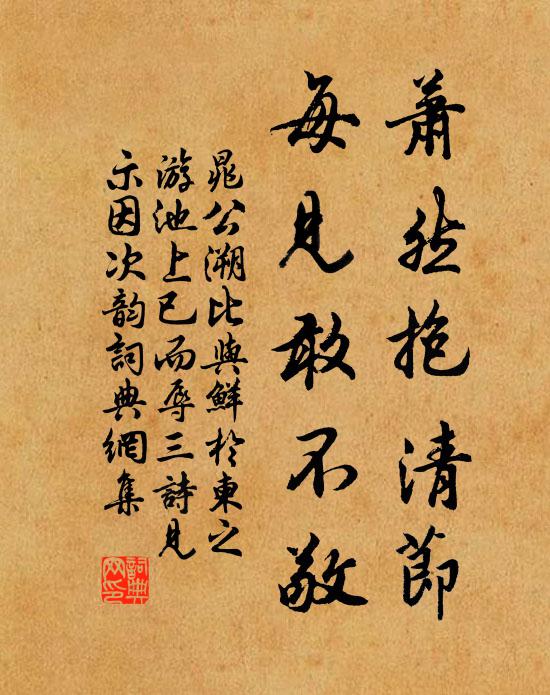 蕭然抱清節
每見敢不敬
晁公溯比與鮮於東之
游池上已而辱三詩見
示因次韵詞典網集
詞典网印